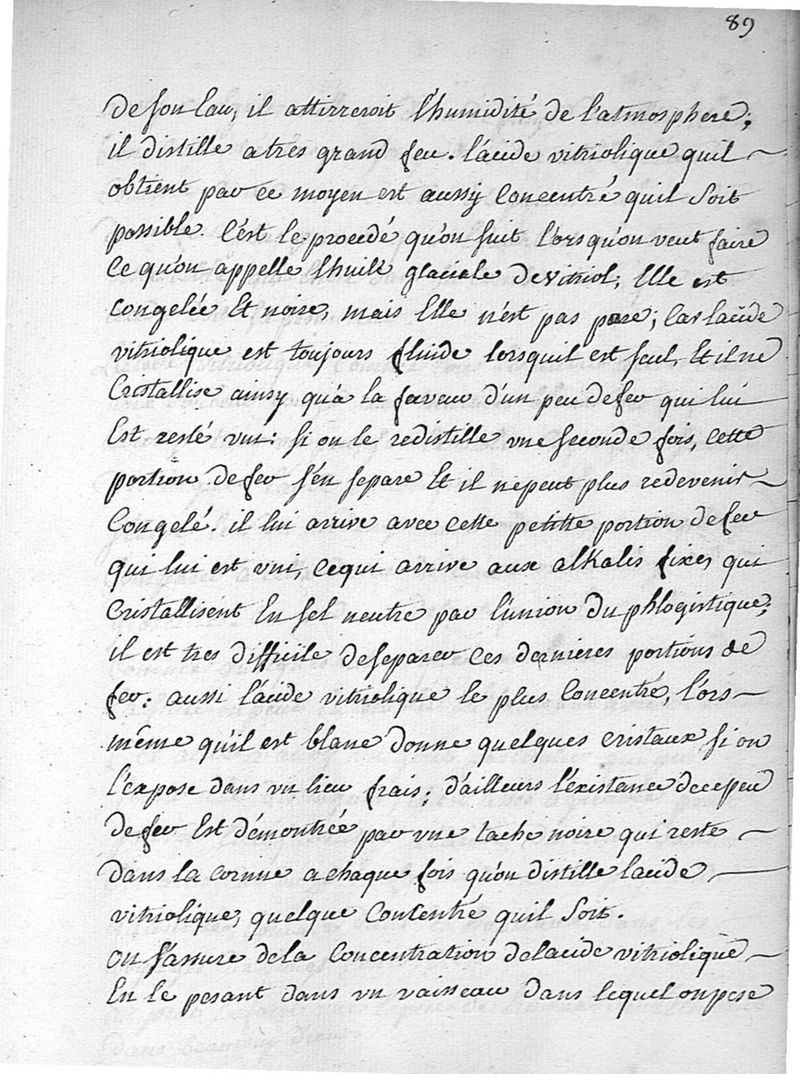 89
de son Eau, il attirreroit l'humidité de l'atmosphere;
il distille a tres grand feu. l'acide vitriolique quil
obtient par ce moyen est aussy Concentré quil soit
possible. C'est le procedé qu'on suit l'orsqu'on veut faire
Ce qu'on appelle l'huile glaciale de vitriol; Elle est
Congelée Et noire, mais Elle n'est pas pure; Car l'acide
vitriolique est toujours fluide lorsquil est seul, Et il ne
Cristallise ainsy qu'a la faveur d'un peu de feu qui lui
Est resté uni: si on le redistille une seconde fois, Cette
portion de feu s'en separe Et il ne peut plus redevenir
Congelé. il lui arrive avec Cette petitte portion de feu
qui lui est uni, Ce qui arrive aux alkalis fixes qui
Cristallisent En sel neutre par l'union du phlogistique;
il est tres difficile de separer Ces dernieres portions de
feu: aussi l'acide vitriolique le plus Concentré, l'ors
même qu'il est blanc donne quelques Cristaux si on
l'expose dans un lieu frais; d'ailleurs l'existance de ce peu
de feu Est démontrée par une tache noire qui reste
dans la cornue a chaque fois qu'on distille l'acide
vitriolique, quelque Concentré quil soit.
on s'assure de la Concentration de l'acide vitriolique
En le pesant dans un vaisseau dans lequel on pese